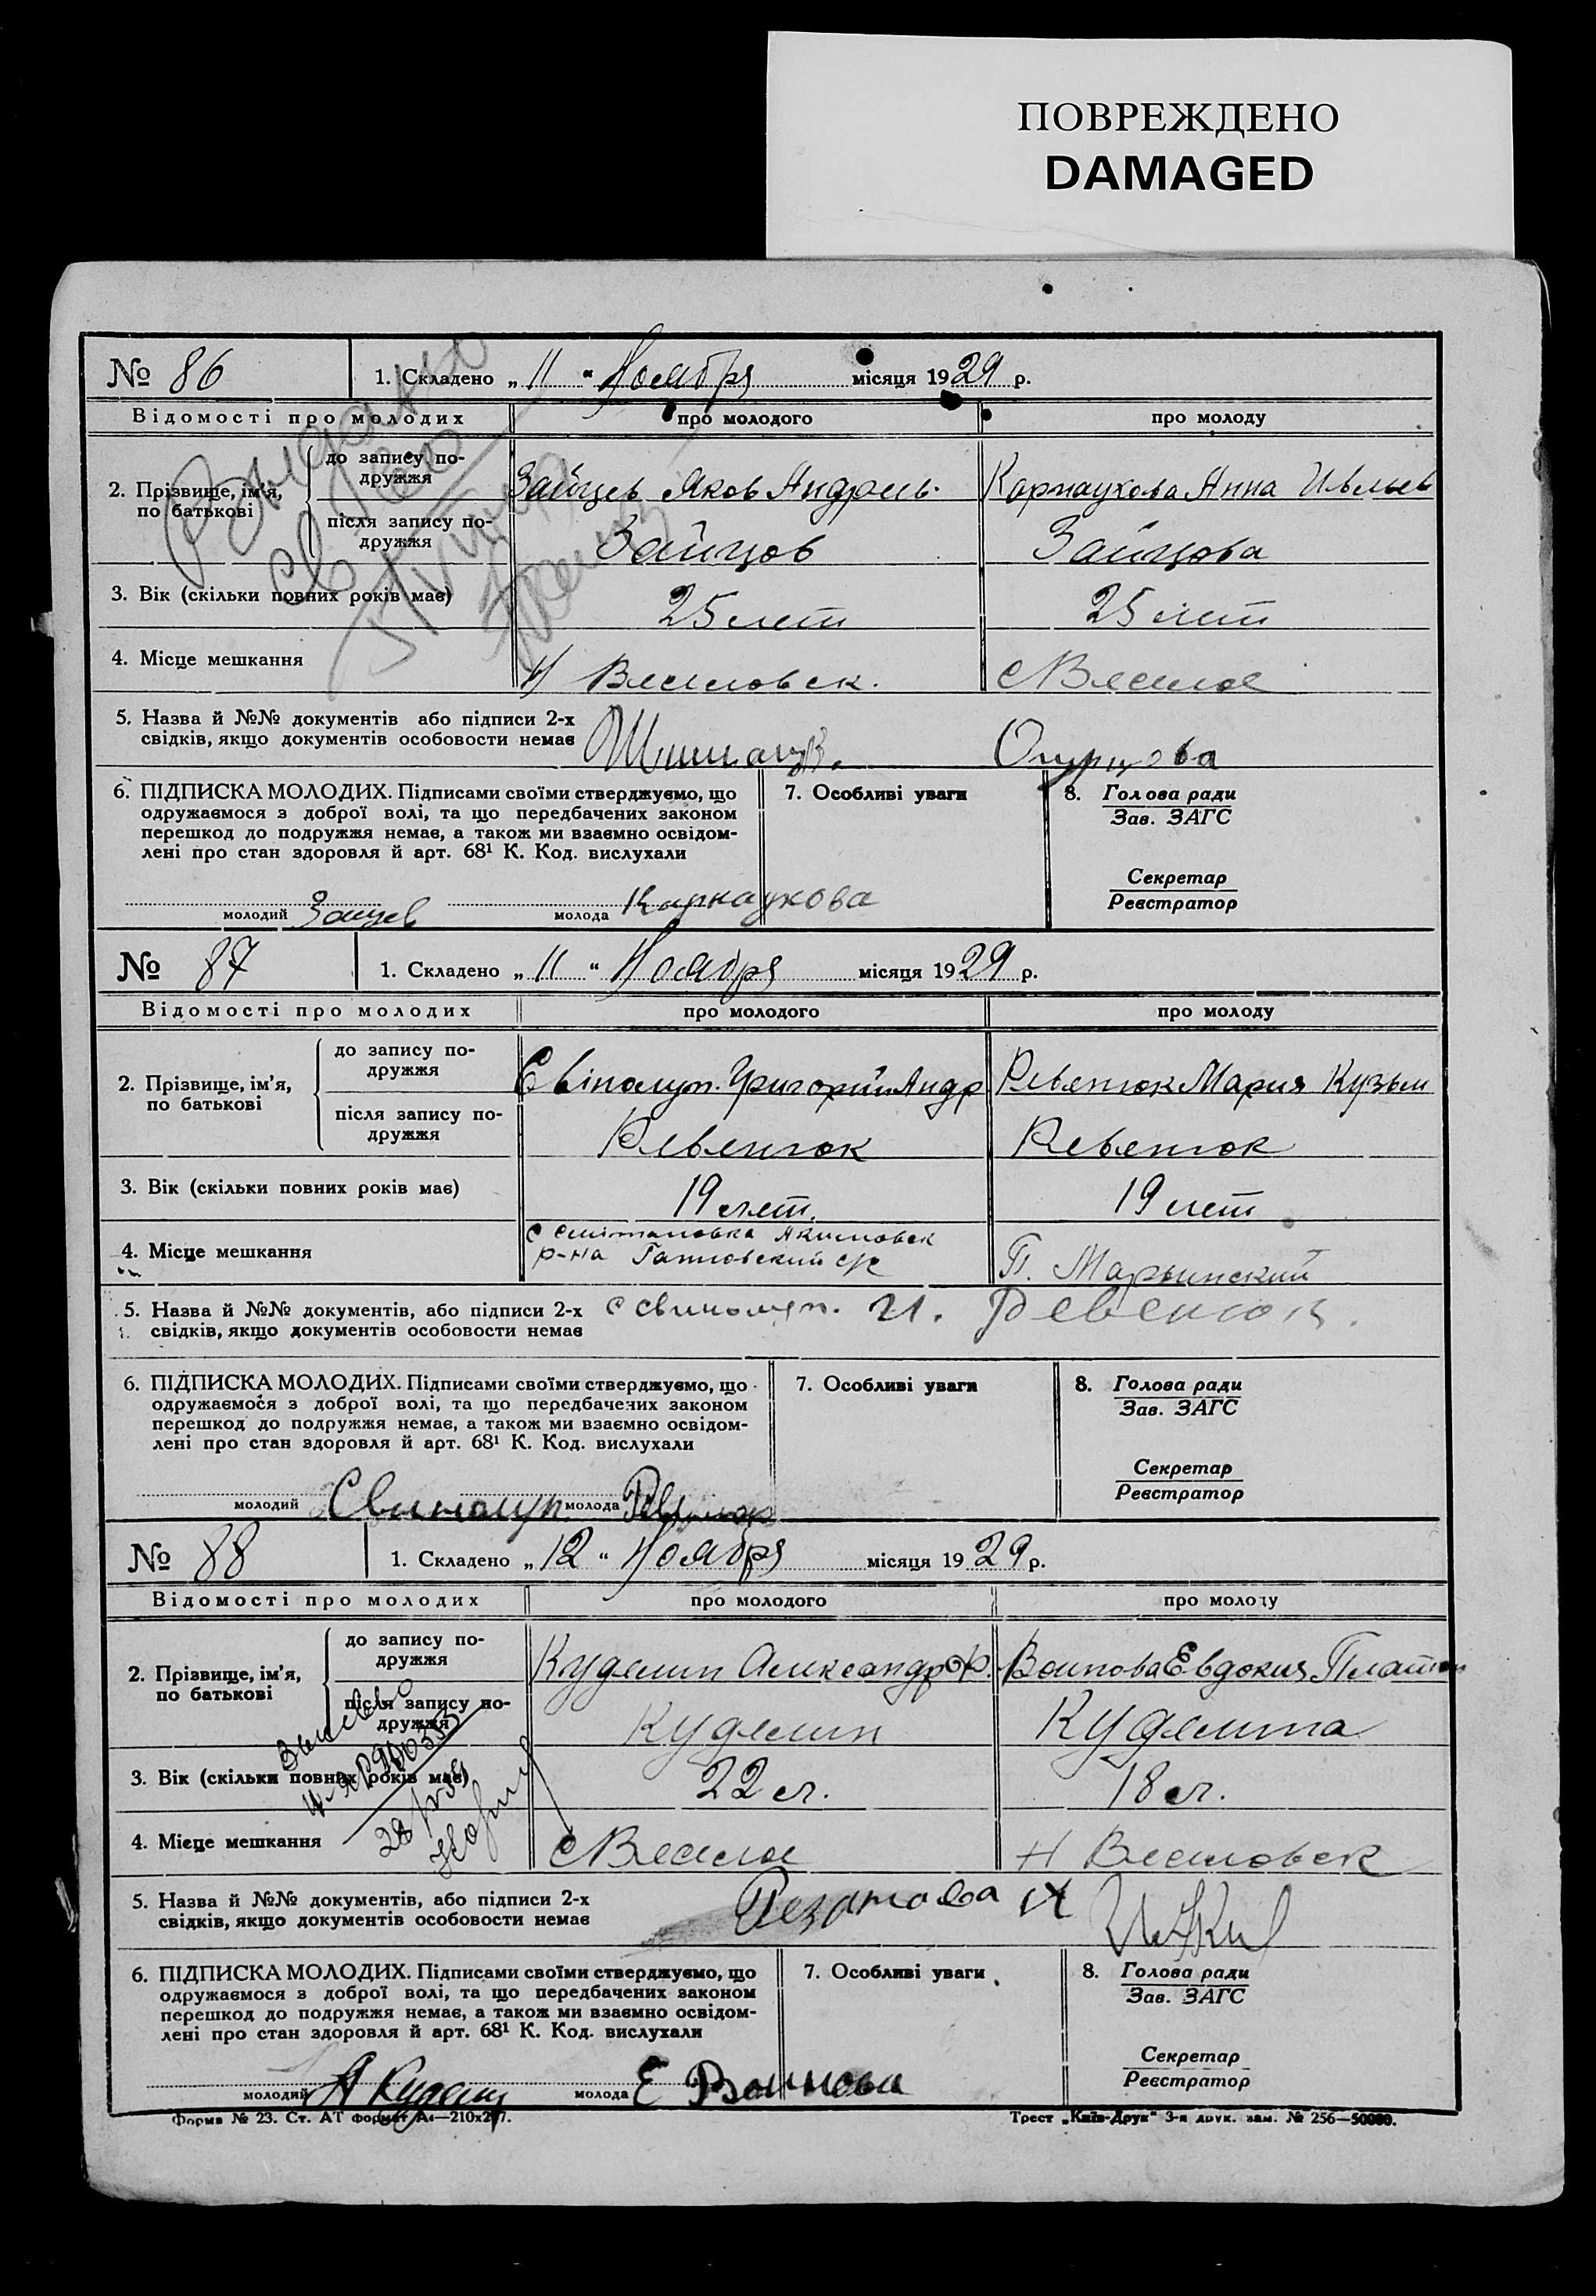 ПОВРЕЖДЕНО
DAMAGED
№ 86 1. Складено „ 11 “ Ноября місяця 1929 р.
Відомості про молодих про молодого про молоду
2. Прізвище, ім’я, по батькові
до запису подружжя Зайцев Яков Андреев. Карнаухова Анна
після запису подружжя Зайцов Зайцова
3. Вік (скільки повних років має) 25 лет 25 лет
4. Місце мешкання
5. Назва й №№ документів або підписи 2-х
свідків, якщо документів особовости немає Огурцова
6. ПІДПИСКА МОЛОДИХ. Підписами своїми стверджуємо, що
одружаємося з доброї волі, та що передбачених законом
перешкод до подружжя немає, а також ми взаємно освідом-
лені про стан здоровля й арт. 68¹ К. Код. вислухали
7. Особливі уваги
8. Голова ради
Зав. ЗАГС
Секретар
Реєстратор
молодий Зайцев молода Карнаукова
№ 87 1. Складено „ 11 “ Ноября місяця 1929 р.
Відомості про молодих про молодого про молоду
2. Прізвище, ім’я, по батькові
до запису подружжя Григорий Андр Ревенюк Мария Кузьм
після запису подружжя Ревенюк Ревенюк
3. Вік (скільки повних років має) 19 лет. 19 лет
4. Місце мешкання
р-на
П. Марьинский
5. Назва й №№ документів, або підписи 2-х
свідків, якщо документів особовости немає Ревенюк.
6. ПІДПИСКА МОЛОДИХ. Підписами своїми стверджуємо, що
одружаємося з доброї волі, та що передбачених законом
перешкод до подружжя немає, а також ми взаємно освідом-
лені про стан здоровля й арт. 68¹ К. Код. вислухали
7. Особливі уваги
8. Голова ради
Зав. ЗАГС
Секретар
Реєстратор
молодий молода Ревенюк
№ 88 1. Складено „ 12 “ Ноября місяця 1929 р.
Відомості про молодих про молодого про молоду
2. Прізвище, ім’я, по батькові
до запису подружжя Куделин Александр Ф. Воинова Евдокия Платон
після запису подружжя Куделин Куделина
3. Вік (скільки повних років має) 22 л. 18 л.
4. Місце мешкання
5. Назва й №№ документів, або підписи 2-х
свідків, якщо документів особовости немає
6. ПІДПИСКА МОЛОДИХ. Підписами своїми стверджуємо, що
одружаємося з доброї волі, та що передбачених законом
перешкод до подружжя немає, а також ми взаємно освідом-
лені про стан здоровля й арт. 68¹ К. Код. вислухали
7. Особливі уваги
8. Голова ради
Зав. ЗАГС
Секретар
Реєстратор
молодий А Куделин молода Е Воинова
Форма № 23. Ст. АТ формат А₄—210х297. Трест „Київ-Друк“ 3-я друк. зам. № 256—50000.